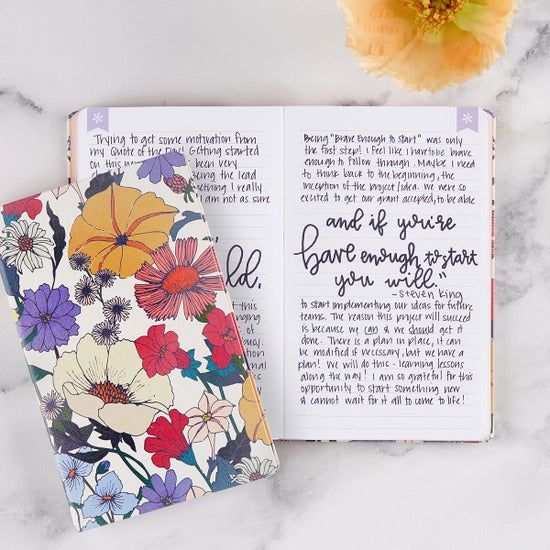 Trying to get some motivation from
my Quote of the Day! Getting started
on this ne been very
being the lead
mething I really
I am not as sure
ld,
t this
nging
Being "Brave Enough to Start" was only
the first step! I feel like I have to be brave
enough to follow through. Maybe I need
to think back to the beginning, the
inception of the project/idea. We were so
excited to get our grant accepted, to be able
and if you're
brave enough to start
you will."
- Steven King
to start implementing our ideas for future
teams. The reason this project will succeed
is because we can & we should get it
done. There is a plan in place, it can
be modified if necessary, but we have a
plan! We will do this - learning lessons
along the way! I am so grateful for this
opportunity to start something new
& cannot wait for it all to come to life!